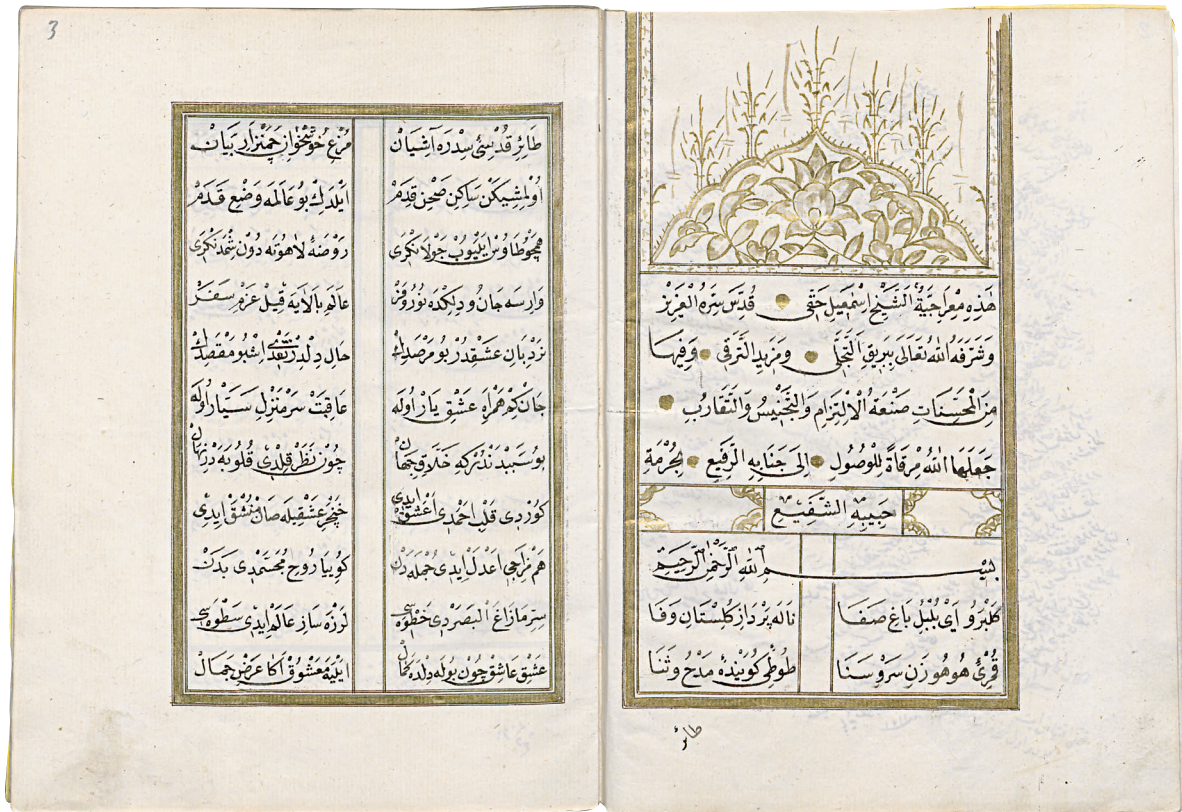 هٰذِهِ مِعْرَاجِيَّةُ الشَّيْخِ اِسْمٰعِيل حَقِّى قُدِّسَ سِرُّهُ الْعَزِيز
وَشَرَّفَهُ اللهُ تَعَالَى بِبَرِيقِ التَّجَلِّى وَمَزِيدِ التَّرَقِّى وَفِيهَا
مِنَ الْمُحَسِّنَاتِ صَنْعَةُ الْاِلْتِزَامِ وَالتَّجْنِيسِ وَالتَّقَارُبِ
جَعَلَهَا اللهُ مِرْقَاةً لِلْوُصُولِ اِلَى جَنَابِهِ الرَّفِيعِ بِحُرْمَةِ
حَبِيبِهِ الشَّفِيعِ
بِسْمِ اللهِ الرَّحْمٰنِ الرَّحِيمِ
كَلْبَرُو اَىْ بُلْبُلِ بَاغِ صَفَا نَالَه پَرْدَازِ كُلِسْتَانِ وَفَا
قُمْرِئِ هُو هُو زَنِ سَرْوِ سَنَا طُوطِئِ كُويَنْدَۀ مَدْح وَثَنَا
طائر
3
طَائِرِ قُدْسِئِ سِدْرَه آشِيَانْ مُرْغِ خُوشْخَوَانِ چَمَنْزَارِ بَيَانْ
اُولْمِشِيكَنْ سَاكِنِ صَحْنِ قِدَمْ اَيْلَدِكْ بُو عَالَمَه وَضْعِ قَدَمْ
هَمْچُو طَاوُسْ اَيْلَيُوبْ جَوْلَانْكَرِى رَوْضَۀ لَاهُوتَه دُونْ شِمْدَنْكَرِى
وَارِسَه جَانْ و دِلِكْدَه نُورُ و فَرْ عَالَمِ بَالَايَه قِيلْ عَزْمِ سَفَرْ
نَرْدِبَانِ عِشْقْدُرْ بُو مَرْصَدِكْ حَالِ دِلْدُرْ اِشْبُو مَقْصَدِكْ
جَانْ كِه هَمْرَاهِ عِشْقِ يَارْ اُولَه عَاقِبَتْ سَرْمَنْزِلِ سَيَّارْ اُولَه
بُو سَبَبْدَنْدُرْ كِه خَلَّاقِ جِهَانْ چُونْ نَظَرْ قِلْدِى قُلُوبَه دَرْ نِهَانْ
كُورْدِى قَلْبِ اَحْمَدِى اَعْشَقْ اِيدِى خَنْجَرِ عِشْقِيلَه صَانْ مُنْشَقْ اِيدِى
هَمْ مِزَاجِى اَعْدَلْ اِيدِى جُمْلَه دَنْ كُويِيَا رُوحِ مُجَسَّمْدِى بَدَنْ
سِرِّ مَازَاغَ الْبَصَرْدِى خَطْوَه سِى لَرْزَه سَازِ عَالَمْ اِيدِى سَطْوَه سِى
عِشْقِ عَاشِقْ چُونْ بُولَه دِلْدَه كَمَالْ اَيْلَيَه مَعْشُوقْ اَكَا عَرْضِ جَمَالْ